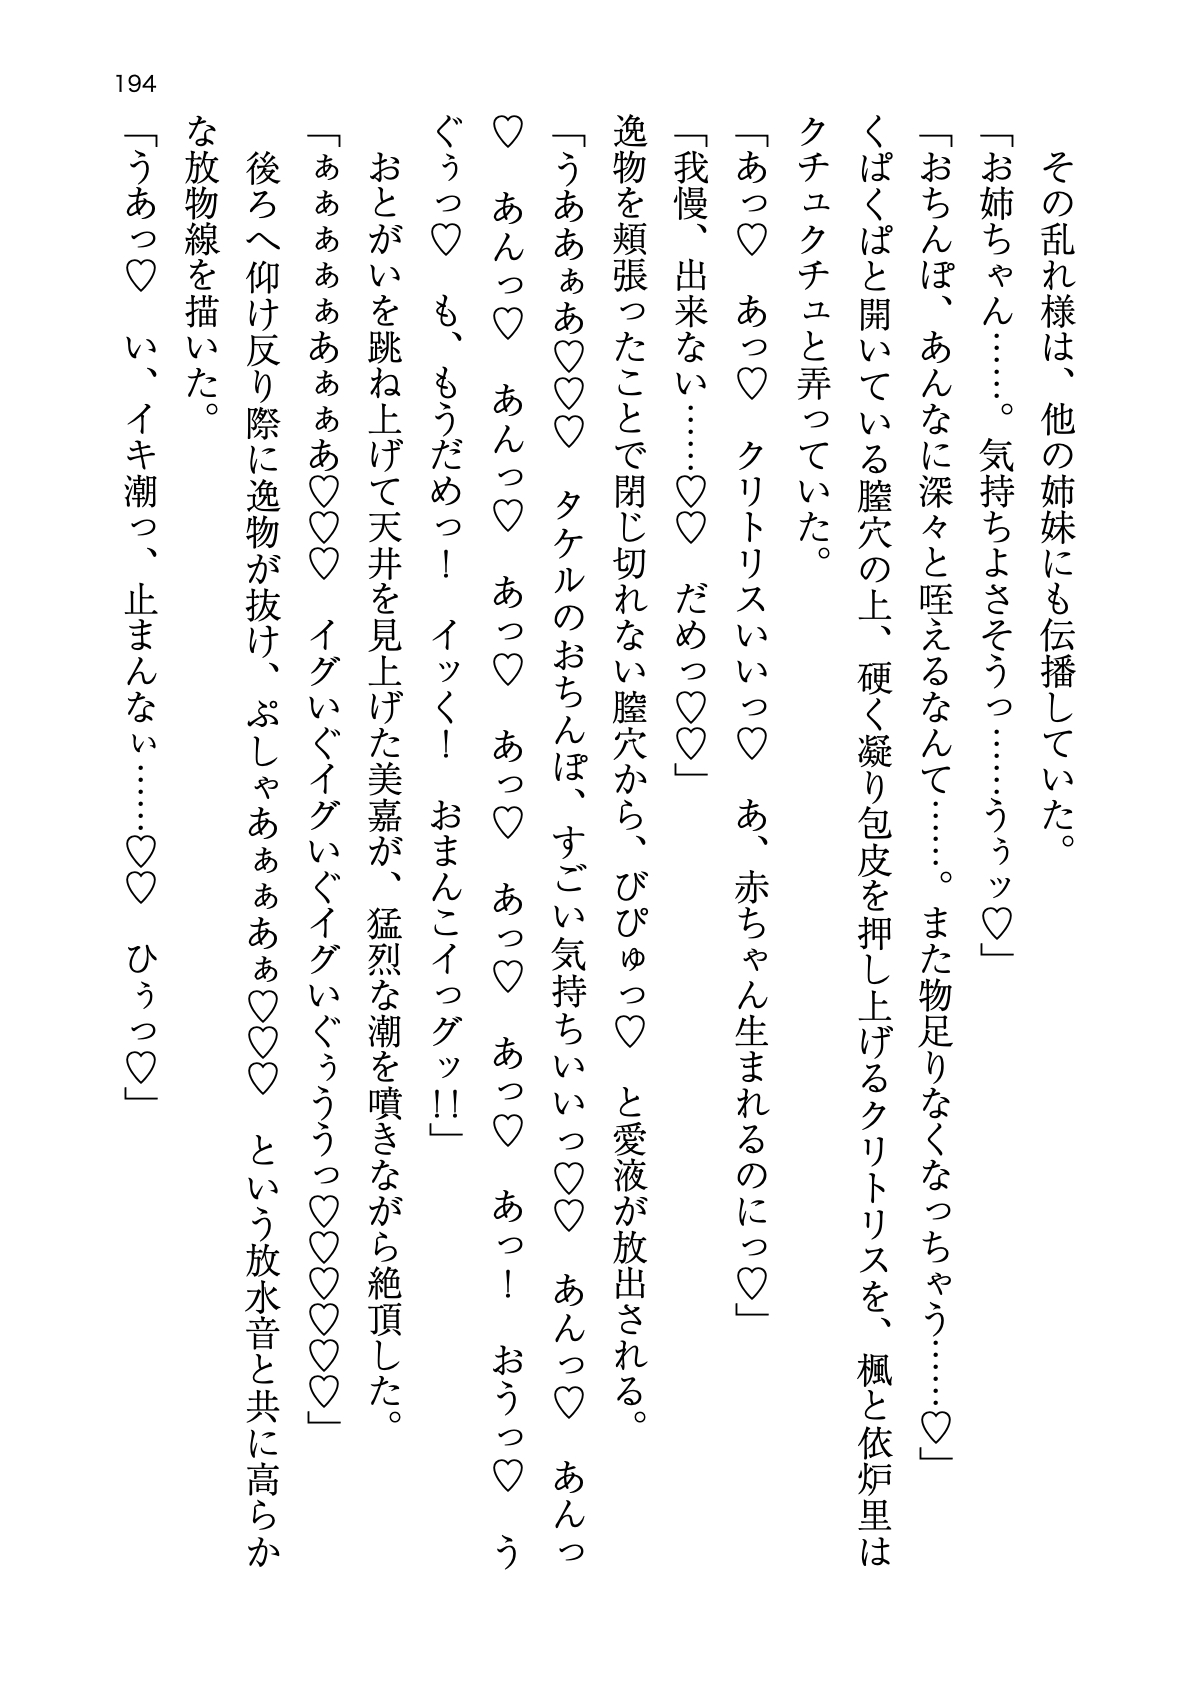 194
その乱れ様は、他の姉妹にも伝播していた。
「お姉ちゃん……。気持ちよさそうっ……うぅッ♡」
「おちんぽ、あんなに深々と咥えるなんて……。また物足りなくなっちゃう……♡」
くぱくぱと開いている膣穴の上、硬く凝り包皮を押し上げるクリトリスを、楓と依炉里は
クチュクチュと弄っていた。
「あっ♡　あっ♡　クリトリスいいっ♡　あ、赤ちゃん生まれるのにっ♡」
「我慢、出来ない……♡♡　だめっ♡♡」
逸物を頬張ったことで閉じ切れない膣穴から、びぴゅっ♡　と愛液が放出される。
「うああぁあ♡♡♡　タケルのおちんぽ、すごい気持ちいいっ♡♡　あんっ♡　あんっ
♡　あんっ♡　あんっ♡　あっ♡　あっ♡　あっ♡　あっ♡　あっ！　おうっ♡　う
ぐぅっ♡　も、もうだめっ！　イッく！　おまんこイっグッ!!」
おとがいを跳ね上げて天井を見上げた美嘉が、猛烈な潮を噴きながら絶頂した。
「ぁぁぁぁぁあぁぁあ♡♡♡　イグいぐイグいぐイグいぐぅううっ♡♡♡♡♡♡」
後ろへ仰け反り際に逸物が抜け、ぷしゃあぁぁあぁ♡♡♡　という放水音と共に高らか
な放物線を描いた。
「うあっ♡　い、イキ潮っ、止まんないぃ……♡♡　ひぅっ♡」